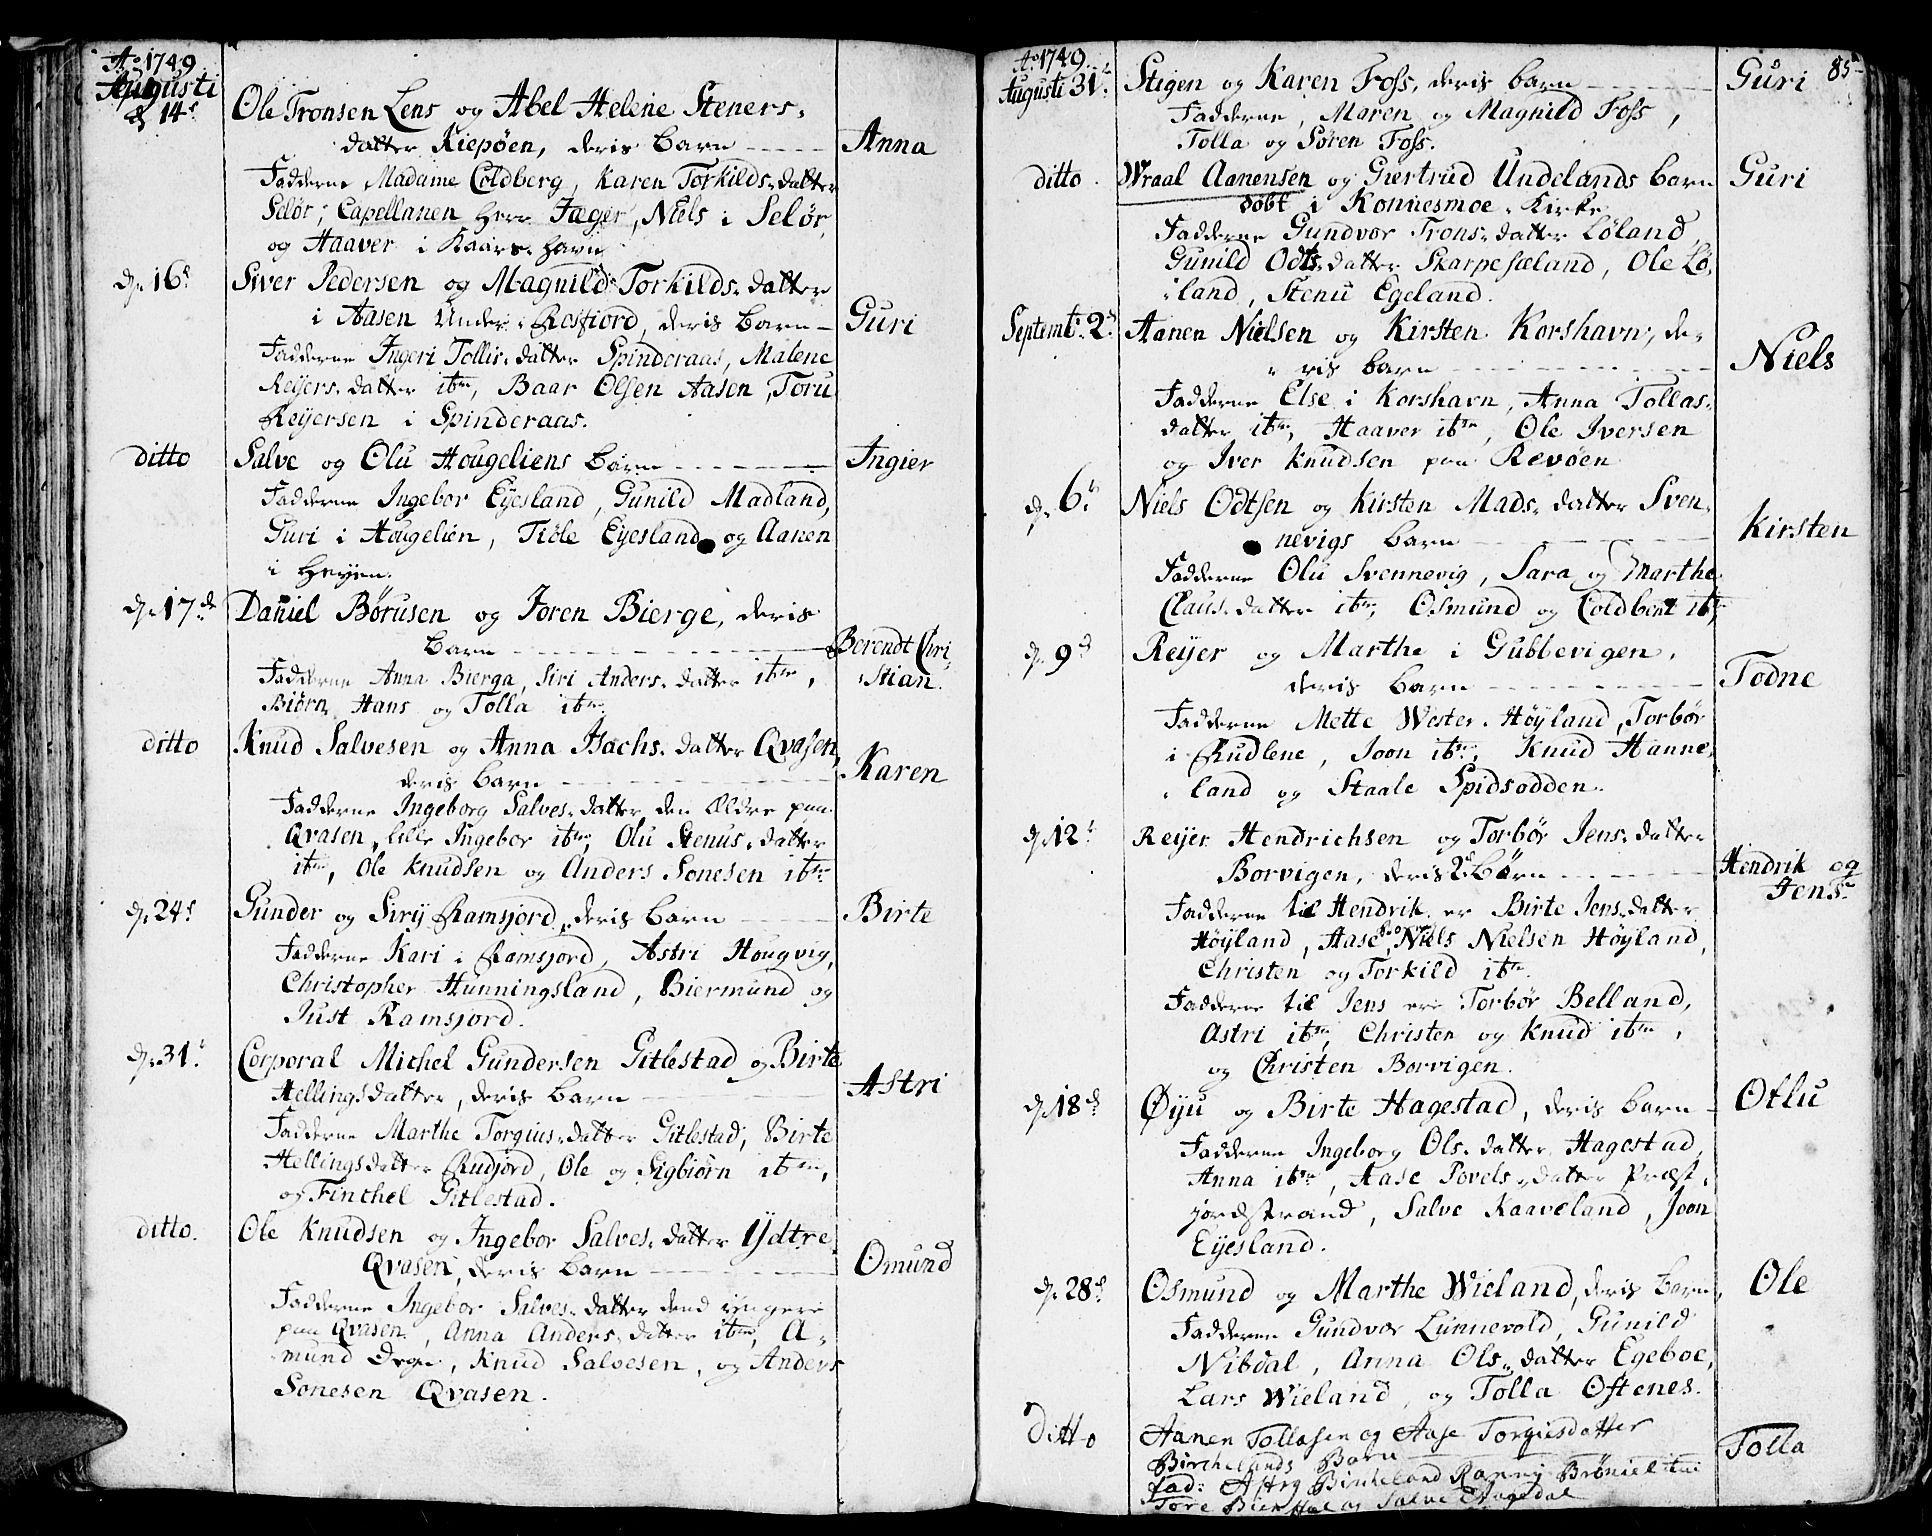 Ao 1749
Augusti
d 14de Ole Tronsen Lens og Abel Helene Steners-
datter Kiepøen, deris barn Anna
Fadderne Madame Coldberg, Karen Torkilds-datter
Selør, Capellanen Herr Jæger, Niels i Selør,
og Haaver i Kaars-havn
d. 16d Siver Pedersen og Magnild Torkilds-datter
i Aasen Under Rosfiord, deris barn Guri
Fadderne Ingeri Tollis-datter Spinderaas, Malene
Reijers-datter itm, Baar Olsen Aasen, Toru
Reijersen i Spinderaas.
ditto Salve og Olu Hougeliens barn Ingier
Fadderne Ingebor Eyesland, Gunild Madland,
Guri i Hougelien, Tiøle Eyesland og Aanen
i Heyen.
d. 17de Daniel Børusen og Joren Bierge, deris
barn Berendt Chri-
stian.
Fadderne Anna Bierga, Siri Anders-datter itm,
Biørn, Hans og Tolla itm
ditto Knud Salvesen og Anna Isachs-datter Qvasen,
deris barn Karen
Fadderne Ingeborg Salves-datter den Ældre paa
Qvasen, lille Ingebor itm, Olu Stenus-datter
itm, Ole Knudsen og Anders Sonesen itm
d. 24d Gunder og Sirij Ramsjord, deris barn Birte
Fadderne Kari i Ramsjord, Astri Hougvig,
Christopher Hunningsland, Biermund og
Just Ramsjord.
d. 31d Corporal Michel Gundersen Gitlestad og Birte
Hellingsdatter, deris barn Astri
Fadderne Marthe Torgius-datter Gitlestad, Birte
Hellingsdatter Rudjord, Ole og Sigbiørn itm,
og Finchel Gitlestad.
ditto. Ole Knudsen og Ingebor Salves-datter Ydtre
Qvasen, deris barn Omund
Fadderne Ingebor Salves-datter dend yngere
paa Qvasen, Anna Anders-datter itm, A-
mund Drge, Knud Salvesen, og Anders
Sonesen Qvasen.
Ao 1749 85
Augusti 31d Stigen og Karen Foss, deris barn Guri
Fadderne, Maren og Magnild Foss,
Tolla og Søren Foss.
ditto. Wraal Aanensen og Giertrud Undelands barn Guri
døbt i Konnesmoe Kirke
Fadderne Gundvor Trons-datter Løland,
Gunild Odts-datter Skarpesæland, Ole Lø-
land, Stenu Egeland.
Septemb. 2d Aanen Nielsen og Kirsten Korshavn, de-
ris barn Niels
Fadderne Else i Korshavn, Anna Tollas-
datter itm, Haaver itm, Ole Iversen
og Iver Knudsen paa Revøen
d. 6t Niels Odtsen og Kirsten Mads-datter Sven-
nevigs barn Kirsten
Fadderne Olu Svennevig, Sara og Marthe
Claus-datter itm, Osmund og Coldbent itm,
d. 9d Reyer og Marthe i Gubbevigen,
deris barn Todne
Fadderne Mette Wester-Høyland, Torbør
i Rudlene, Joon itm, Knud Hanne-
land og Staale Spidsodden.
d. 12t Reyer Hendrichsen og Torbør Jens-datter
Borvigen, deris 2d Børn Hendrik og
Jens
Fadderne til Hendrik er Birte Jens-datter
Høyland, Aase Niels Nielsen Høyland,
Christen og Torkild itm.
Fadderne til Jens ere Torbør Belland,
Astri itm, Christen og Knud itm,
og Christen Borvigen.
d. 18de Øyu og Birte Hagestad, deris barn Otlu
Fadderne Ingeborg Ols-datter Hagestad,
Anna itm, Aase Povels-datter Præst-
jordstrand, Salve Kaaveland, Joon
Eyesland.
d. 28d Osmund og Marthe Wieland, deris barn, Ole
Fadderne Gundvor Lunnevold, Gunild
Nibdal, Anna Ols-datter Egeboe,
Lars Wieland, og Tolla Oftenes.
Ditto Aanen Tollasen og Aase Torgiusdatter
Birchelands Barn Tolla
fad: Astrg Birkeland Ranny Brøniel
Tore og Salve